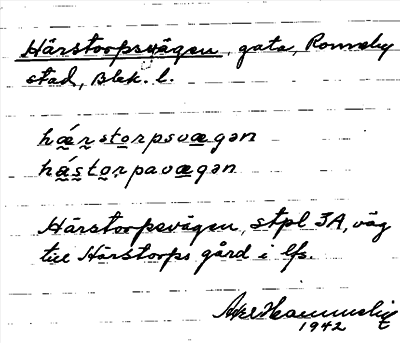 Härstorpsvägen, gata, Ronneby
stad, Blek. l.
hǽrstorpsvægən
hástorpavægən
Härstorpsvägen, stpl 3A, väg
till Härstorps gård i lfs.
1942